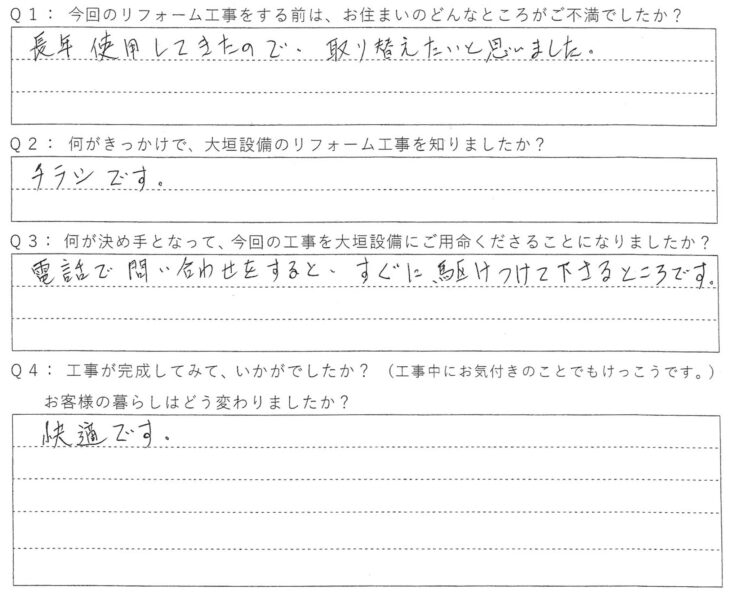 Q1： 今回のリフォーム工事をする前は、お住まいのどんなところがご不満でしたか？
長年使用してきたので、取り替えたいと思いました。
Q2： 何がきっかけで、大垣設備のリフォーム工事を知りましたか？
チラシです。
Q3： 何が決め手となって、今回の工事を大垣設備にご用命くださることになりましたか？
電話で問い合わせをすると、すぐに駆けつけて下さるところです。
Q4： 工事が完成してみて、いかがでしたか？ （工事中にお気付きのことでもけっこうです。）
お客様の暮らしはどう変わりましたか？
快適です。